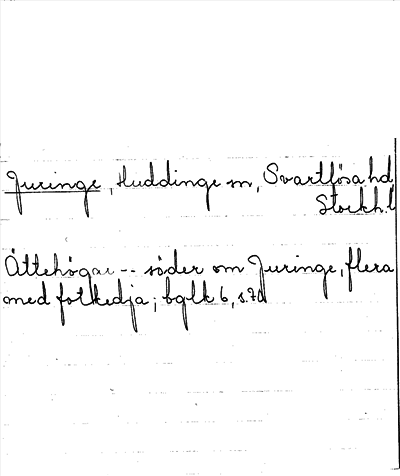 Juringe, Huddinge sn, Svartlösa hd
Stockh.l
Ättehögar -- söder om Juringe, flera
med fotkedja; bglk 6, s.70